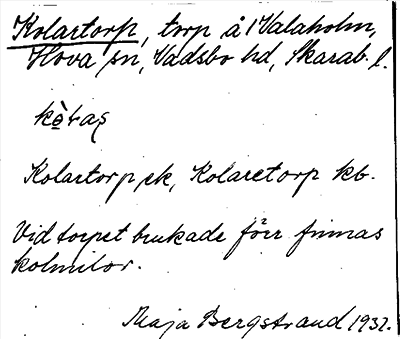 Kolartorp, torp å 1 Valaholm,
Hova sn, Vadsbo hd, Skarab. l.
Kolartorp ek, Kolaretorp kb.
Vid torpet brukade förr finnas
kolmilor.
Maja Bergstrand 1932.